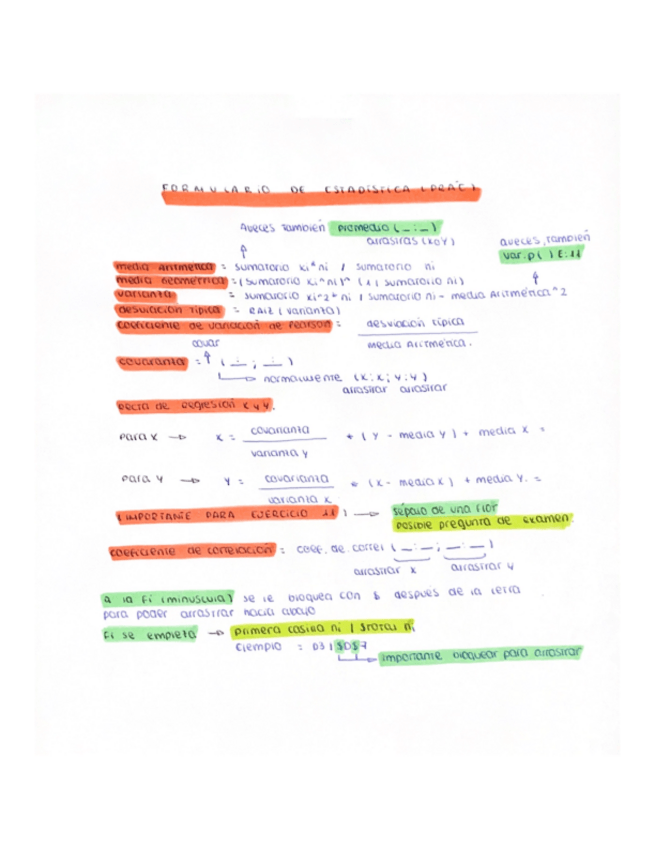 FORMULARIO DE ESTADISTICA (PRAC)
Aveces también promedio (_:_)
arrastras (x o y)
aveces, también
var.p( ) E:11
media aritmetica = sumatorio xi*ni / sumatorio ni
media geometrica = (sumatorio xi^ni)^ (1 / sumatorio ni)
varianza = sumatorio xi^2* ni / sumatorio ni - media Aritmetica^2
desviación tipica = RAIZ (varianza)
coeficiente de variación de pearson = desviación típica
media Aritmetica.
covar
covarianza = (_:_ ; _:_)
normalmente (x:x ; y:y)
arrastrar arrastrar
recta de regresión x y y.
para x → x = covarianza * (y - media y) + media x =
varianza y
para y → y = covarianza * (x - media x) + media y. =
varianza x
(IMPORTANTE PARA EJERCICIO 11) → sépalo de una flor
posible pregunta de examen.
coeficiente de correlación = coef. de. correl (_:_ ; _:_)
arrastrar x arrastrar y
A la fi (minuscula) se le bloquea con $ después de la letra
para poder arrastrar hacia abajo
fi se empieza → primera casilla ni / $total ni
Ejemplo = D3 / $D$7
importante bloquear para arrastrar